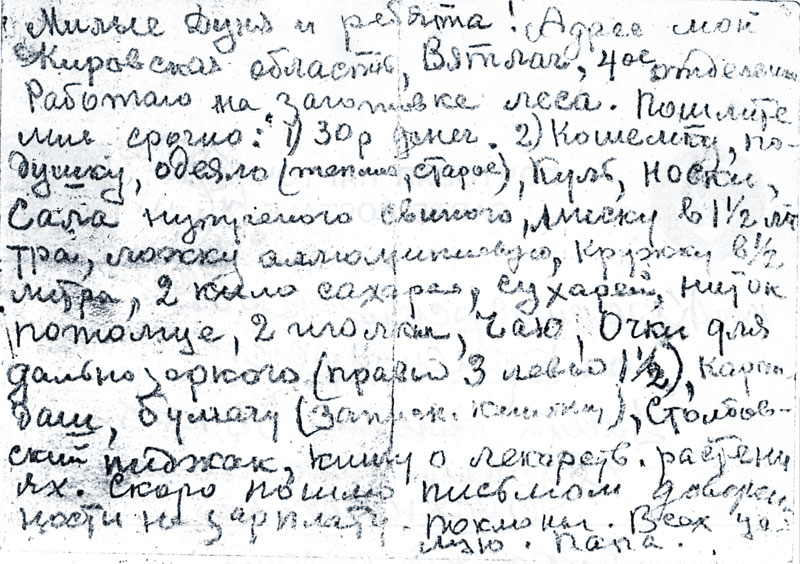 Милые Дуня и ребята! Адрес мой
Кировская область, Вятлаг, 4ое отделение
Работаю на заготовке леса. Пошлите
мне срочно: 1) 30 р денег. 2) Кошемку, по-
душку, одеяло (теплое, старое), Куль, Носки,
Сала свиного, миску в 1½ ли
тра, ложку аллюминивую, Кружку в ½
литра, 2 кило сахара, сухарей, ниток
потолще, 2 иголки, Чаю, Очки для
дальнозоркого (правый 3 левый 1½), Каран
даш, бумагу (записн. книжку), Столбов-
ский пиджак, книгу о лекарств. растени
ях. Скоро пошлю письмом доверен
ности на зарплату. Поклоны. Всех це
лую. Папа.